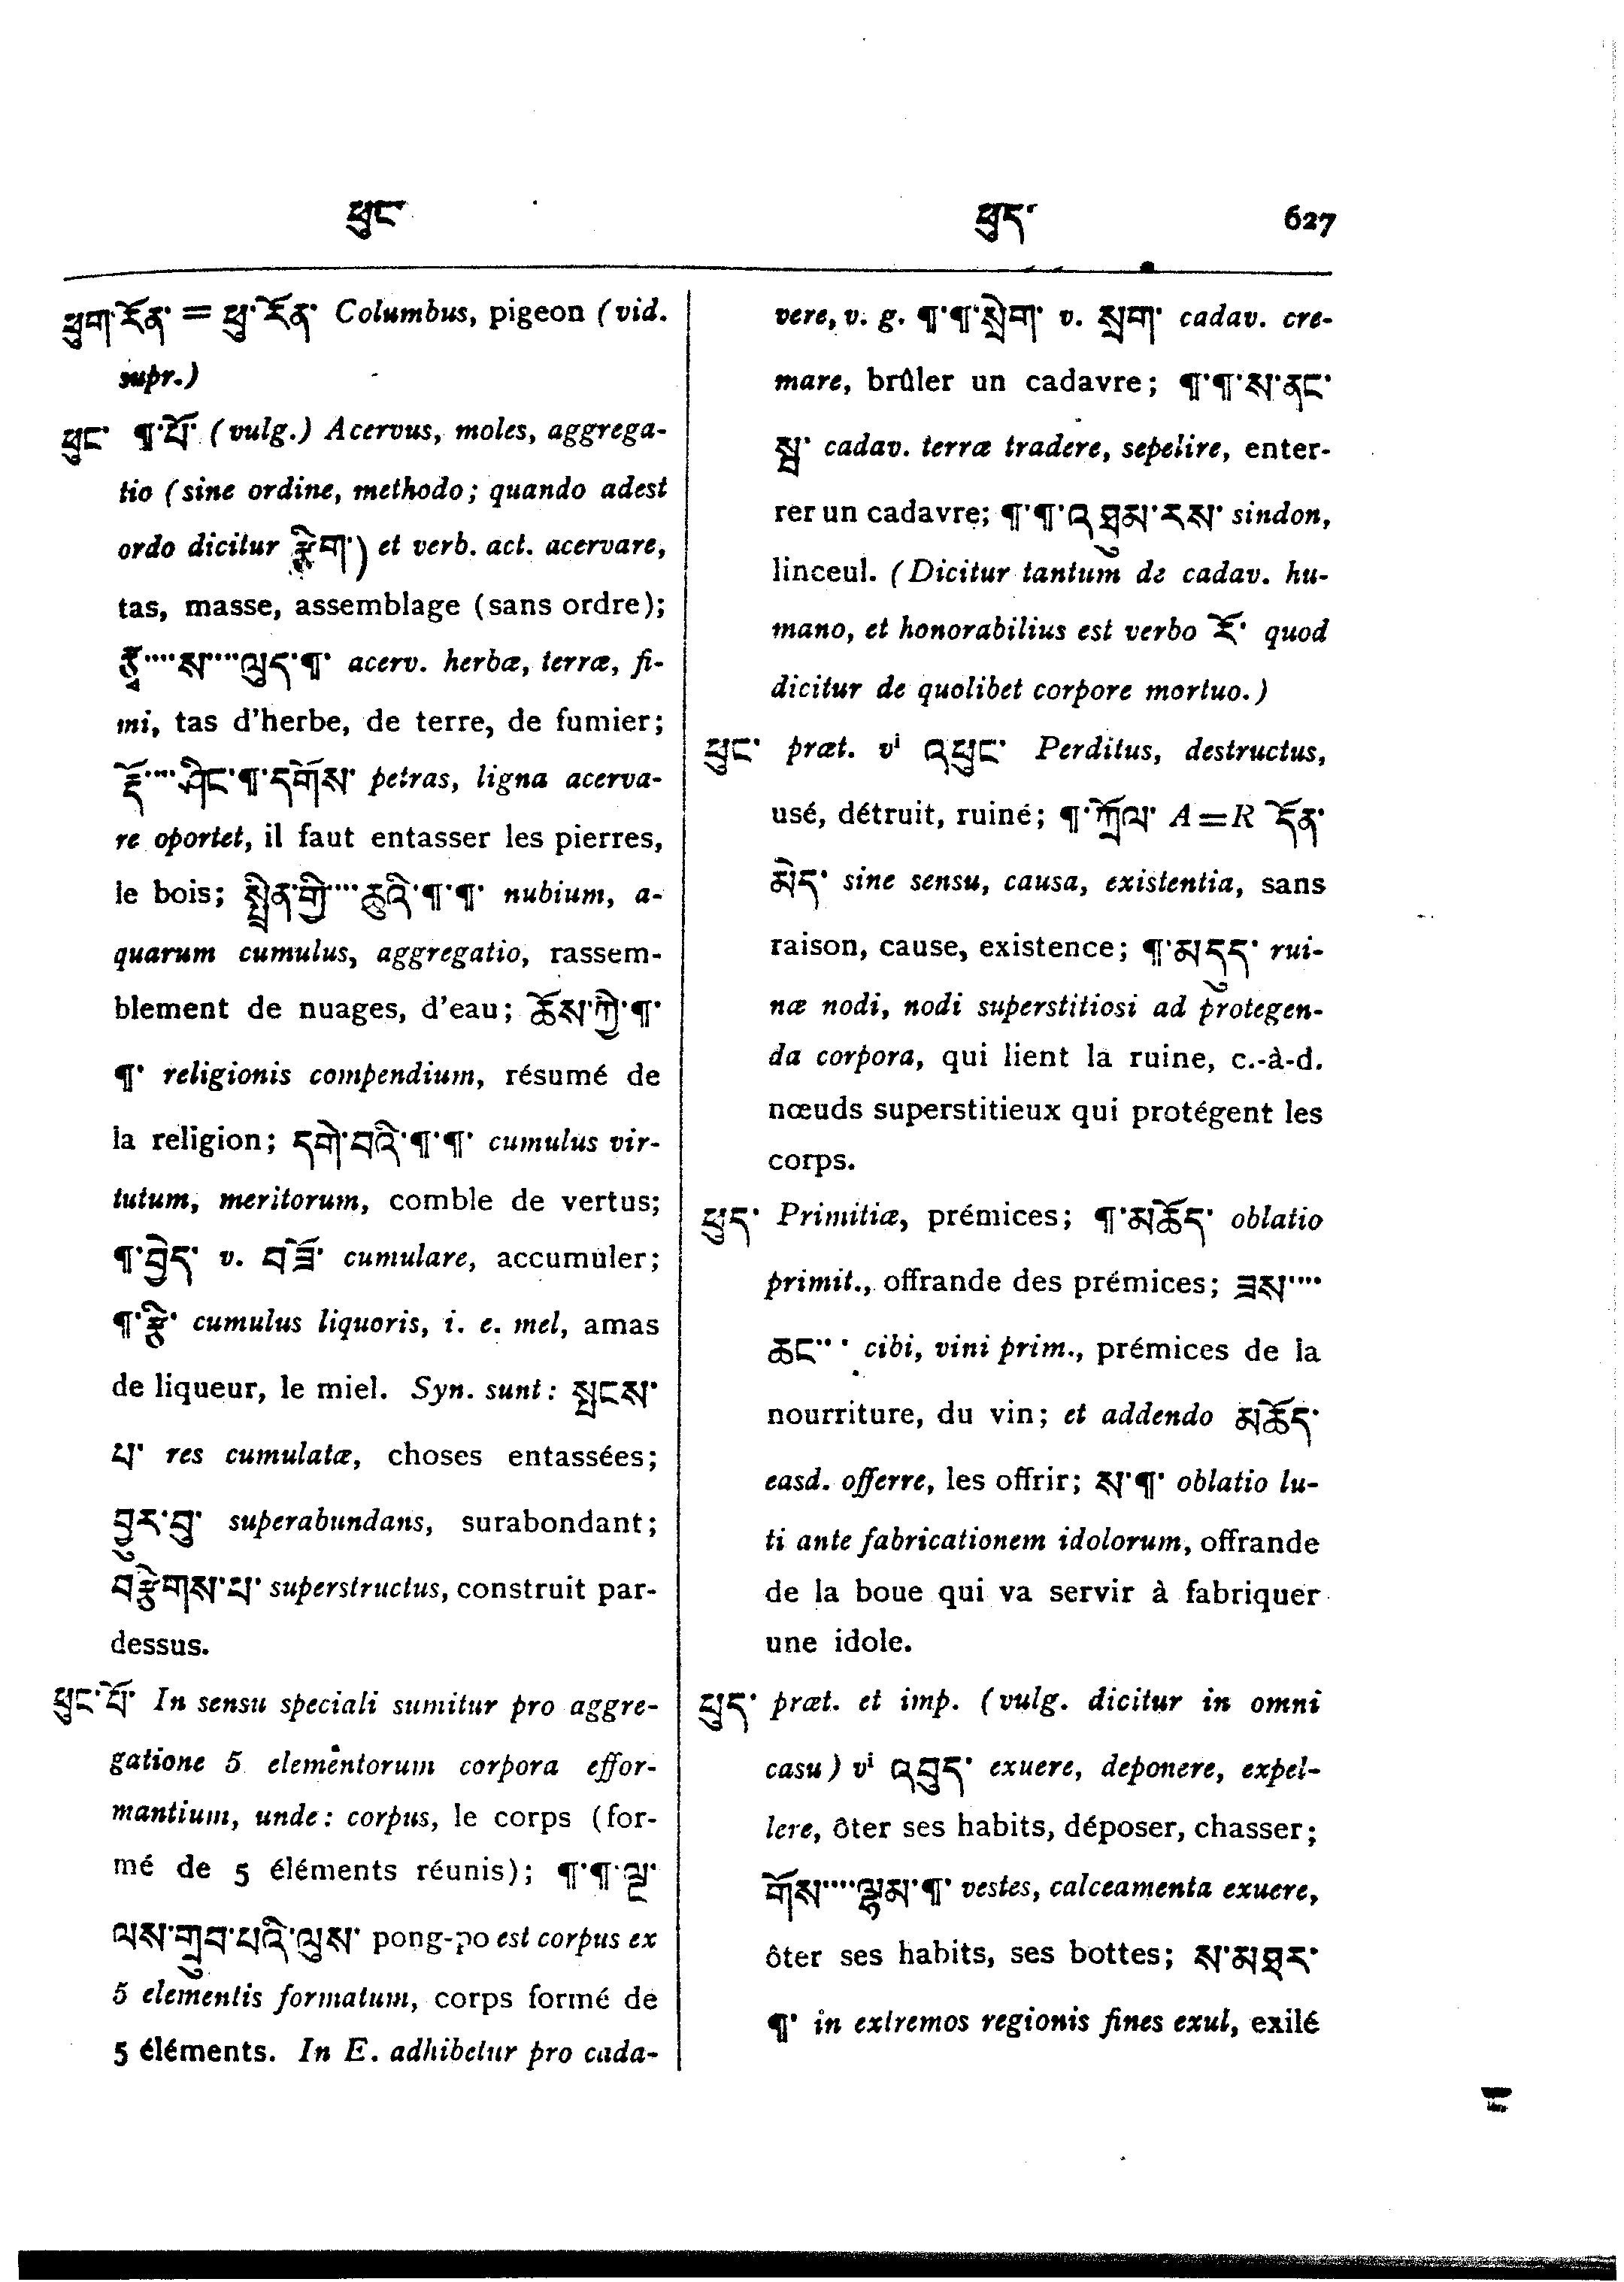 ཕུང་
ཕུད་ 627
ཕུག་རོན་ = ཕུ་རོན་ Columbus, pigeon (vid.
supr.)
ཕུང་ ¶་པོ་ (vulg.) Acervus, moles, aggrega-
tio (sine ordine, methodo; quando adest
ordo dicitur རྩིག་) et verb. act. acervare,
tas, masse, assemblage (sans ordre);
རྩྭ་···ས་···ལུད་¶་ acerv. herbæ, terræ, fi-
mi, tas d'herbe, de terre, de fumier;
རྡོ་···ཤིང་¶་དགོས་ petras, ligna acerva-
re oportet, il faut entasser les pierres,
le bois; སྤྲིན་གྱི་···ཆུའི་¶་¶་ nubium, a-
quarum cumulus, aggregatio, rassem-
blement de nuages, d'eau; ཆོས་ཀྱི་¶་
¶་ religionis compendium, résumé de
la religion; དགེ་བའི་¶་¶་ cumulus vir-
tutum, meritorum, comble de vertus;
¶་བྱེད་ v. བཟོ་ cumulare, accumuler;
¶་རྩི་ cumulus liquoris, i. e. mel, amas
de liqueur, le miel. Syn. sunt: སྤུངས་
པ་ res cumulatæ, choses entassées;
བྱུར་བུ་ superabundans, surabondant;
བརྩེགས་པ་ superstructus, construit par-
dessus.
ཕུང་པོ་ In sensu speciali sumitur pro aggre-
gatione 5 elementorum corpora effor-
mantium, unde: corpus, le corps (for-
mé de 5 éléments réunis); ¶་¶་ལྔ་
ལས་གྲུབ་པའི་ལུས་ pong-po est corpus ex
5 elementis formatum, corps formé de
5 éléments. In E. adhibetur pro cada-
vere, v. g. ¶་¶་སྲེག་ v. སྲག་ cadav. cre-
mare, brûler un cadavre; ¶་¶་ས་ནང་
སྦ་ cadav. terræ tradere, sepelire, enter-
rer un cadavre; ¶་¶་འཐུམ་རས་ sindon,
linceul. (Dicitur tantum de cadav. hu-
mano, et honorabilius est verbo རོ་ quod
dicitur de quolibet corpore mortuo.)
ཕུང་ præt. vi འཕུང་ Perditus, destructus,
usé, détruit, ruiné; ¶་ཀྲོལ་ A=R དོན་
མེད་ sine sensu, causa, existentia, sans
raison, cause, existence; ¶་མདུད་ rui-
næ nodi, nodi superstitiosi ad protegen-
da corpora, qui lient la ruine, c.-à-d.
nœuds superstitieux qui protégent les
corps.
ཕུད་ Primitiæ, prémices; ¶་མཆོད་ oblatio
primit., offrande des prémices; ཟས་···
ཆང་··· cibi, vini prim., prémices de la
nourriture, du vin; et addendo མཆོད་
easd. offerre, les offrir; ས་¶་ oblatio lu-
ti ante fabricationem idolorum, offrande
de la boue qui va servir à fabriquer
une idole.
ཕུད་ præt. et imp. (vulg. dicitur in omni
casu) vi འབུད་ exuere, deponere, expel-
lere, ôter ses habits, déposer, chasser;
གོས་···ལྷམ་¶་ vestes, calceamenta exuere,
ôter ses habits, ses bottes; ས་མཐར་
¶་ in extremos regionis fines exul, exilé